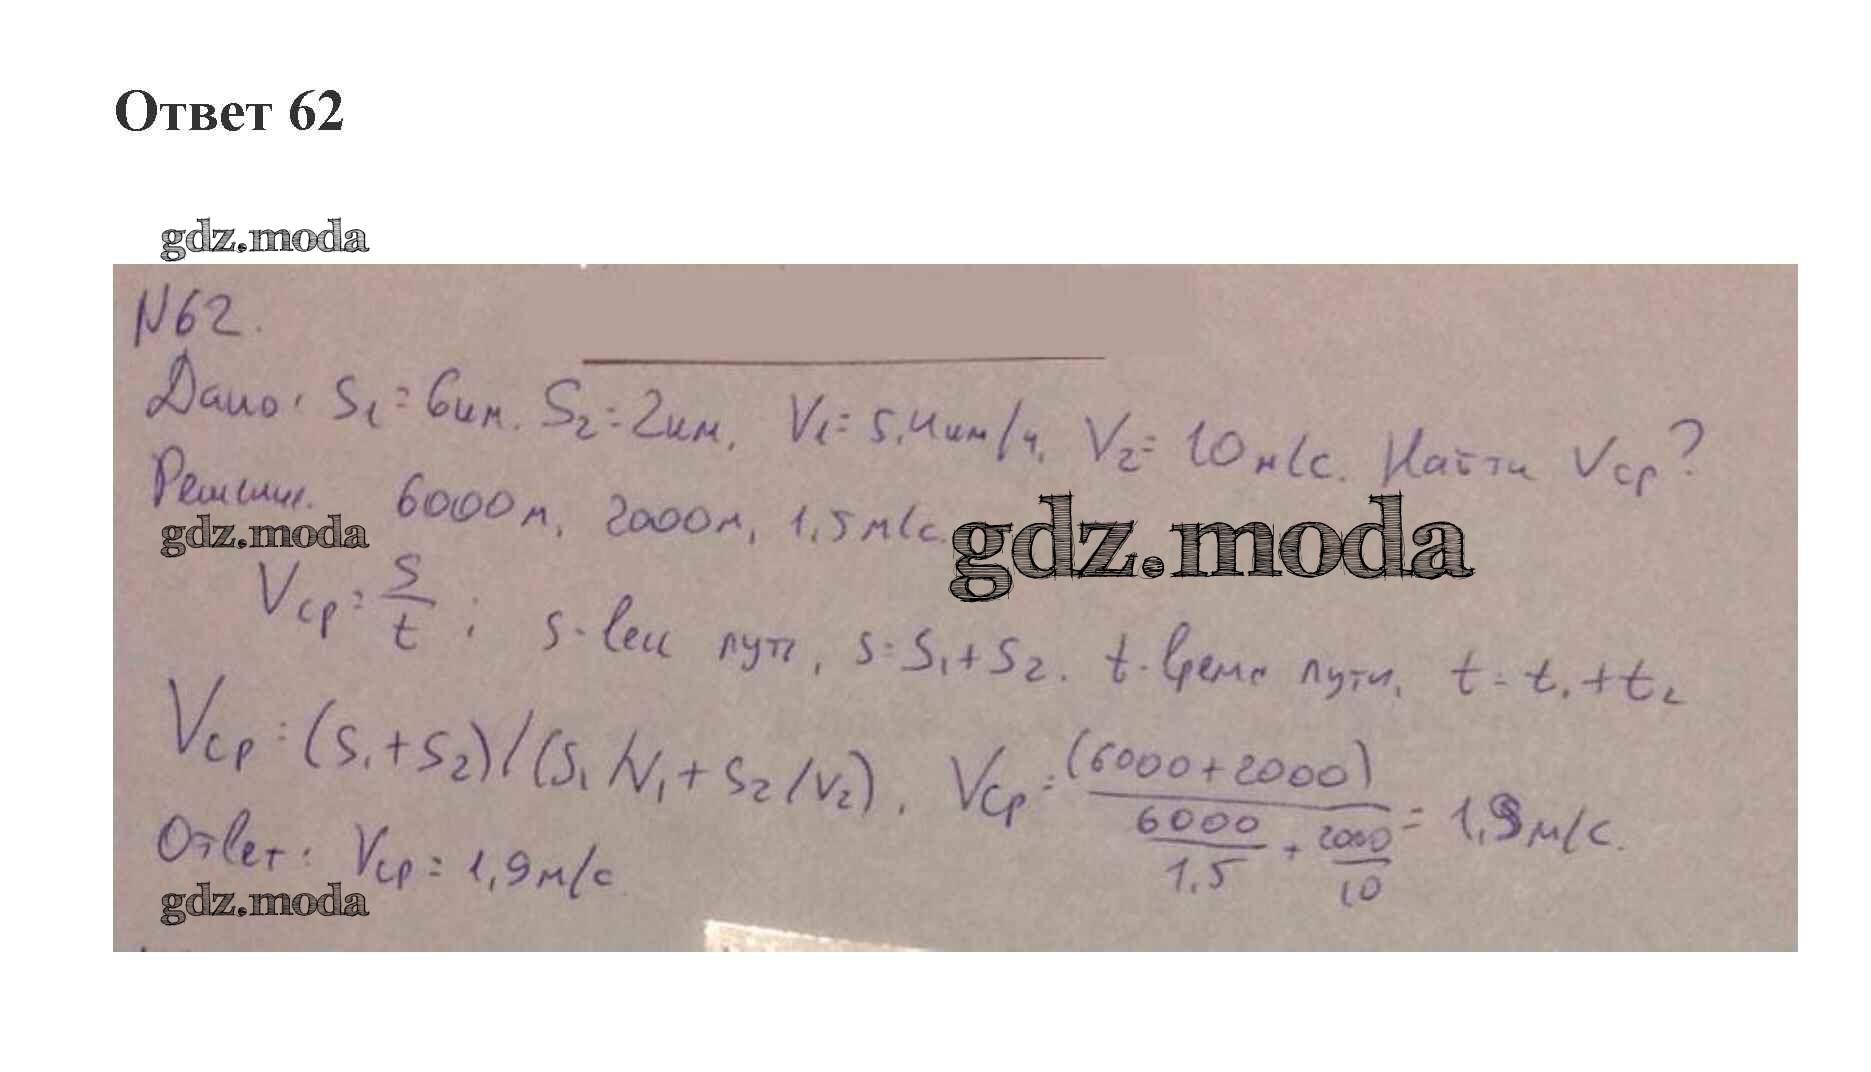 Ответ 62
gdz.moda
N62.
Дано: S₁=6км. S₂=2км. V₁=5,4км/ч. V₂=10м/с. Найти Vср?
Решение. 6000м, 2000м, 1,5м/с.
gdz.moda gdz.moda
Vср = S/t ; S-весь путь, S=S₁+S₂. t-время пути, t=t₁+t₂
Vср=(S₁+S₂)/(S₁/V₁+S₂/V₂). Vср=(6000+2000)/(6000/1.5+2000/10)=1,9м/с.
Ответ: Vср=1,9м/с
gdz.moda